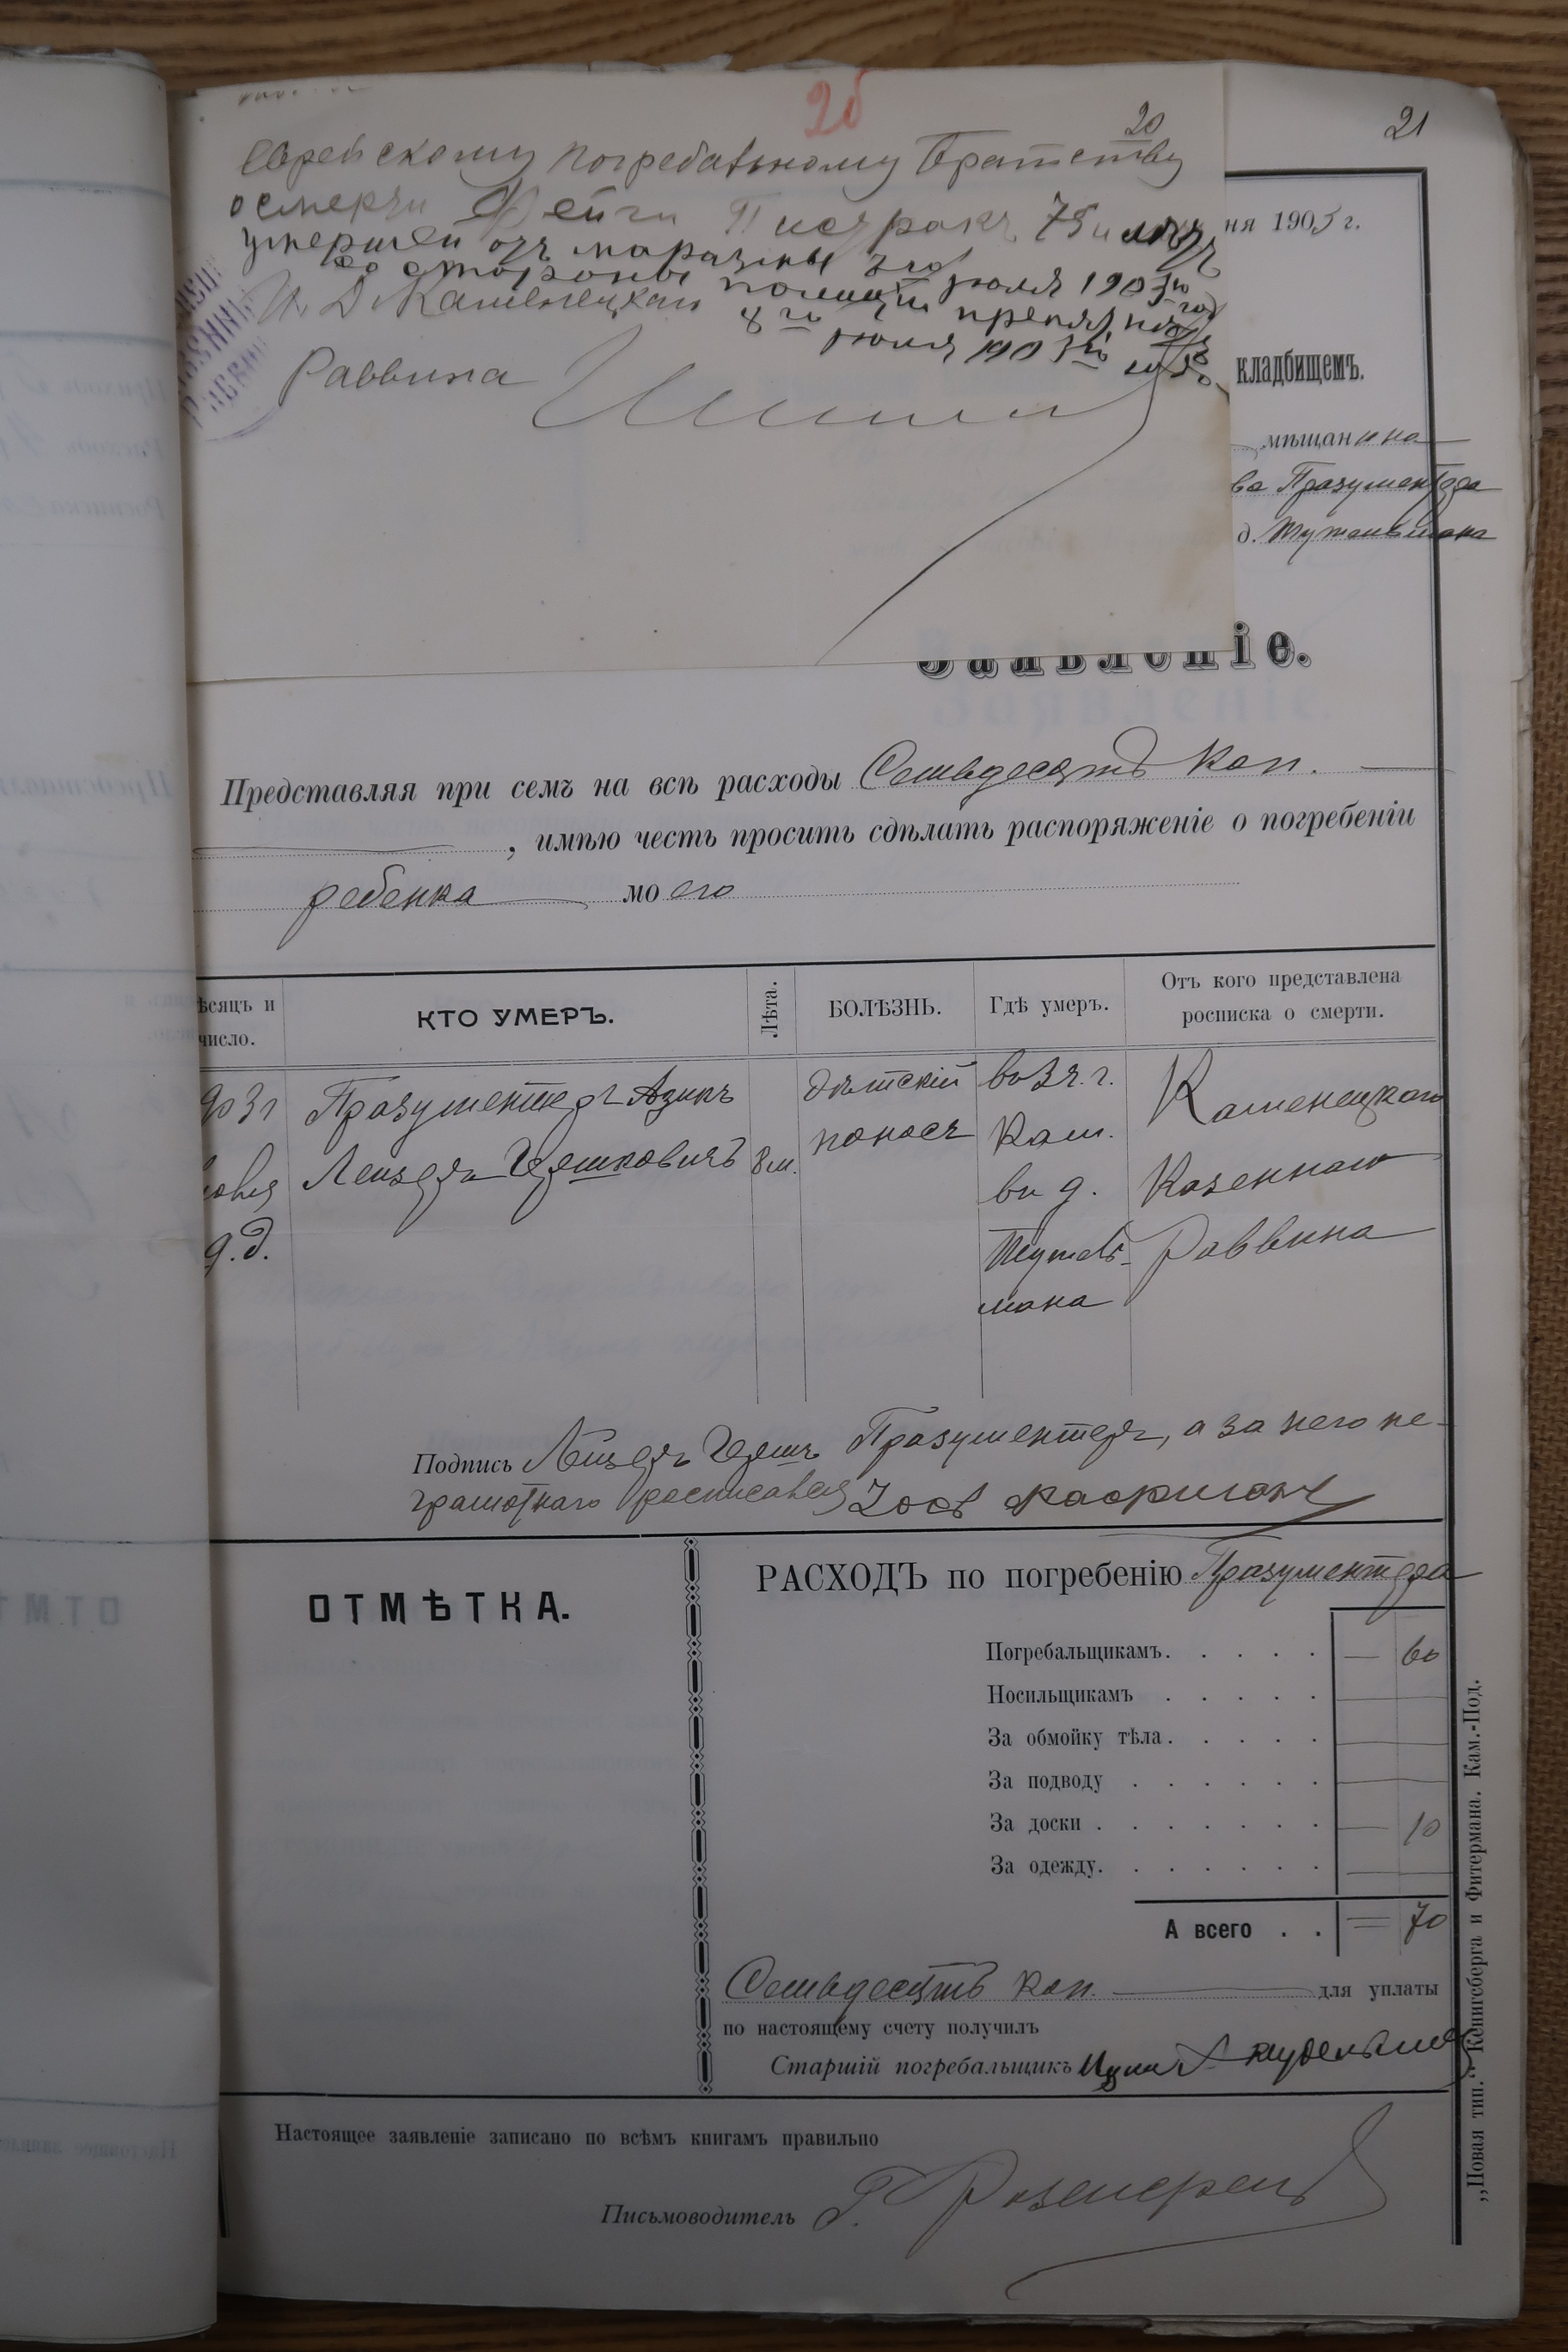 26
20
21
Еврейскому погребальному Братству
о смерти Фейги Писчракъ 75и лѣтъ
умершей отъ маразмы 7го июля 1903го года
со стороны полиции препят.
И. Д. Каменецкаго
8го июля 1903го
Раввина
ня 1903 г.
кладбищемъ.
мѣщанина
ва Празументера
д.
Заявленіе.
Представляя при семъ на всѣ расходы Семьдесятъ коп.
, имѣю честь просить сдѣлать распоряженіе о погребеніи
ребенка моего
ѣсяцъ и число.
КТО УМЕРЪ.
Лѣта.
БОЛѢЗНЬ.
Гдѣ умеръ.
Отъ кого представлена росписка о смерти.
Празументеръ Азикъ
Лейзеръ Гершковичъ
8 м.
дѣтскій
поносъ
въ 3 ч. г.
Кам.
въ д.
мана
Каменецкаго
Казеннаго
Раввина
Подпись Лейзеръ Гершъ Празументеръ, а за него не-
грамотнаго росписался
ОТМѢТКА.
РАСХОДЪ по погребенію Празументера
Погребальщикамъ. . . . . — 60
Носильщикамъ . . . . .
За обмойку тѣла. . . . .
За подводу . . . . . .
За доски . . . . . . . — 10
За одежду. . . . . . .
А всего . . 70
Семьдесятъ коп. для уплаты
по настоящему счету получилъ
Старшій погребальщикъ
Настоящее заявленіе записано по всѣмъ книгамъ правильно
Письмоводитель
„Новая тип." Кенигсберга и Фитермана. Кам.-Под.